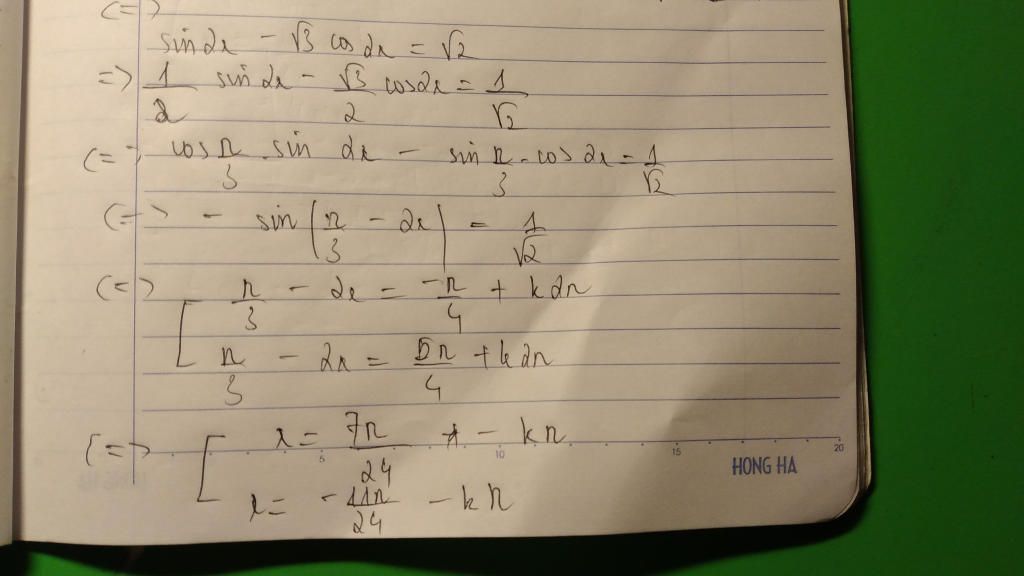 (=)
sin2x - √3 cos2x = √2
=> 1/2 sin 2x - √3/2 cos2x = 1/√2
(=) cos π/3 . sin 2x - sin π/3 . cos 2x = 1/√2
(=) - sin(π/3 - 2x) = 1/√2
(=) [ π/3 - 2x = -π/4 + k2π
π/3 - 2x = 5π/4 + k2π
(=) [ x = 7π/24 - kπ
x = -11π/24 - kπ
5 10 15 20
HONG HA